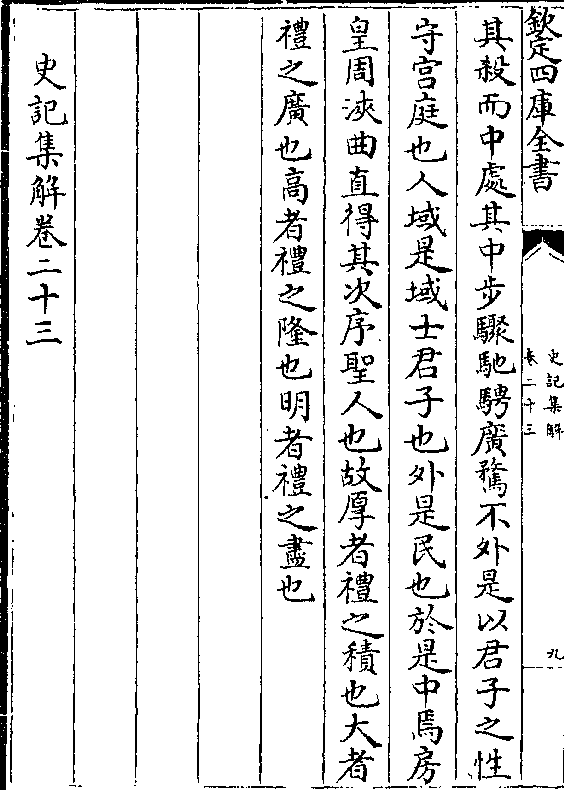 欽定四庫全書
史記集解
卷二十三
九
其殺而中處其中步驟馳騁廣騖不外是以君子之性
守宫庭也人域是域士君子也外是民也於是中焉房
皇周浹曲直得其次序聖人也故厚者禮之積也大者
禮之廣也高者禮之隆也明者禮之盡也
史記集解卷二十三